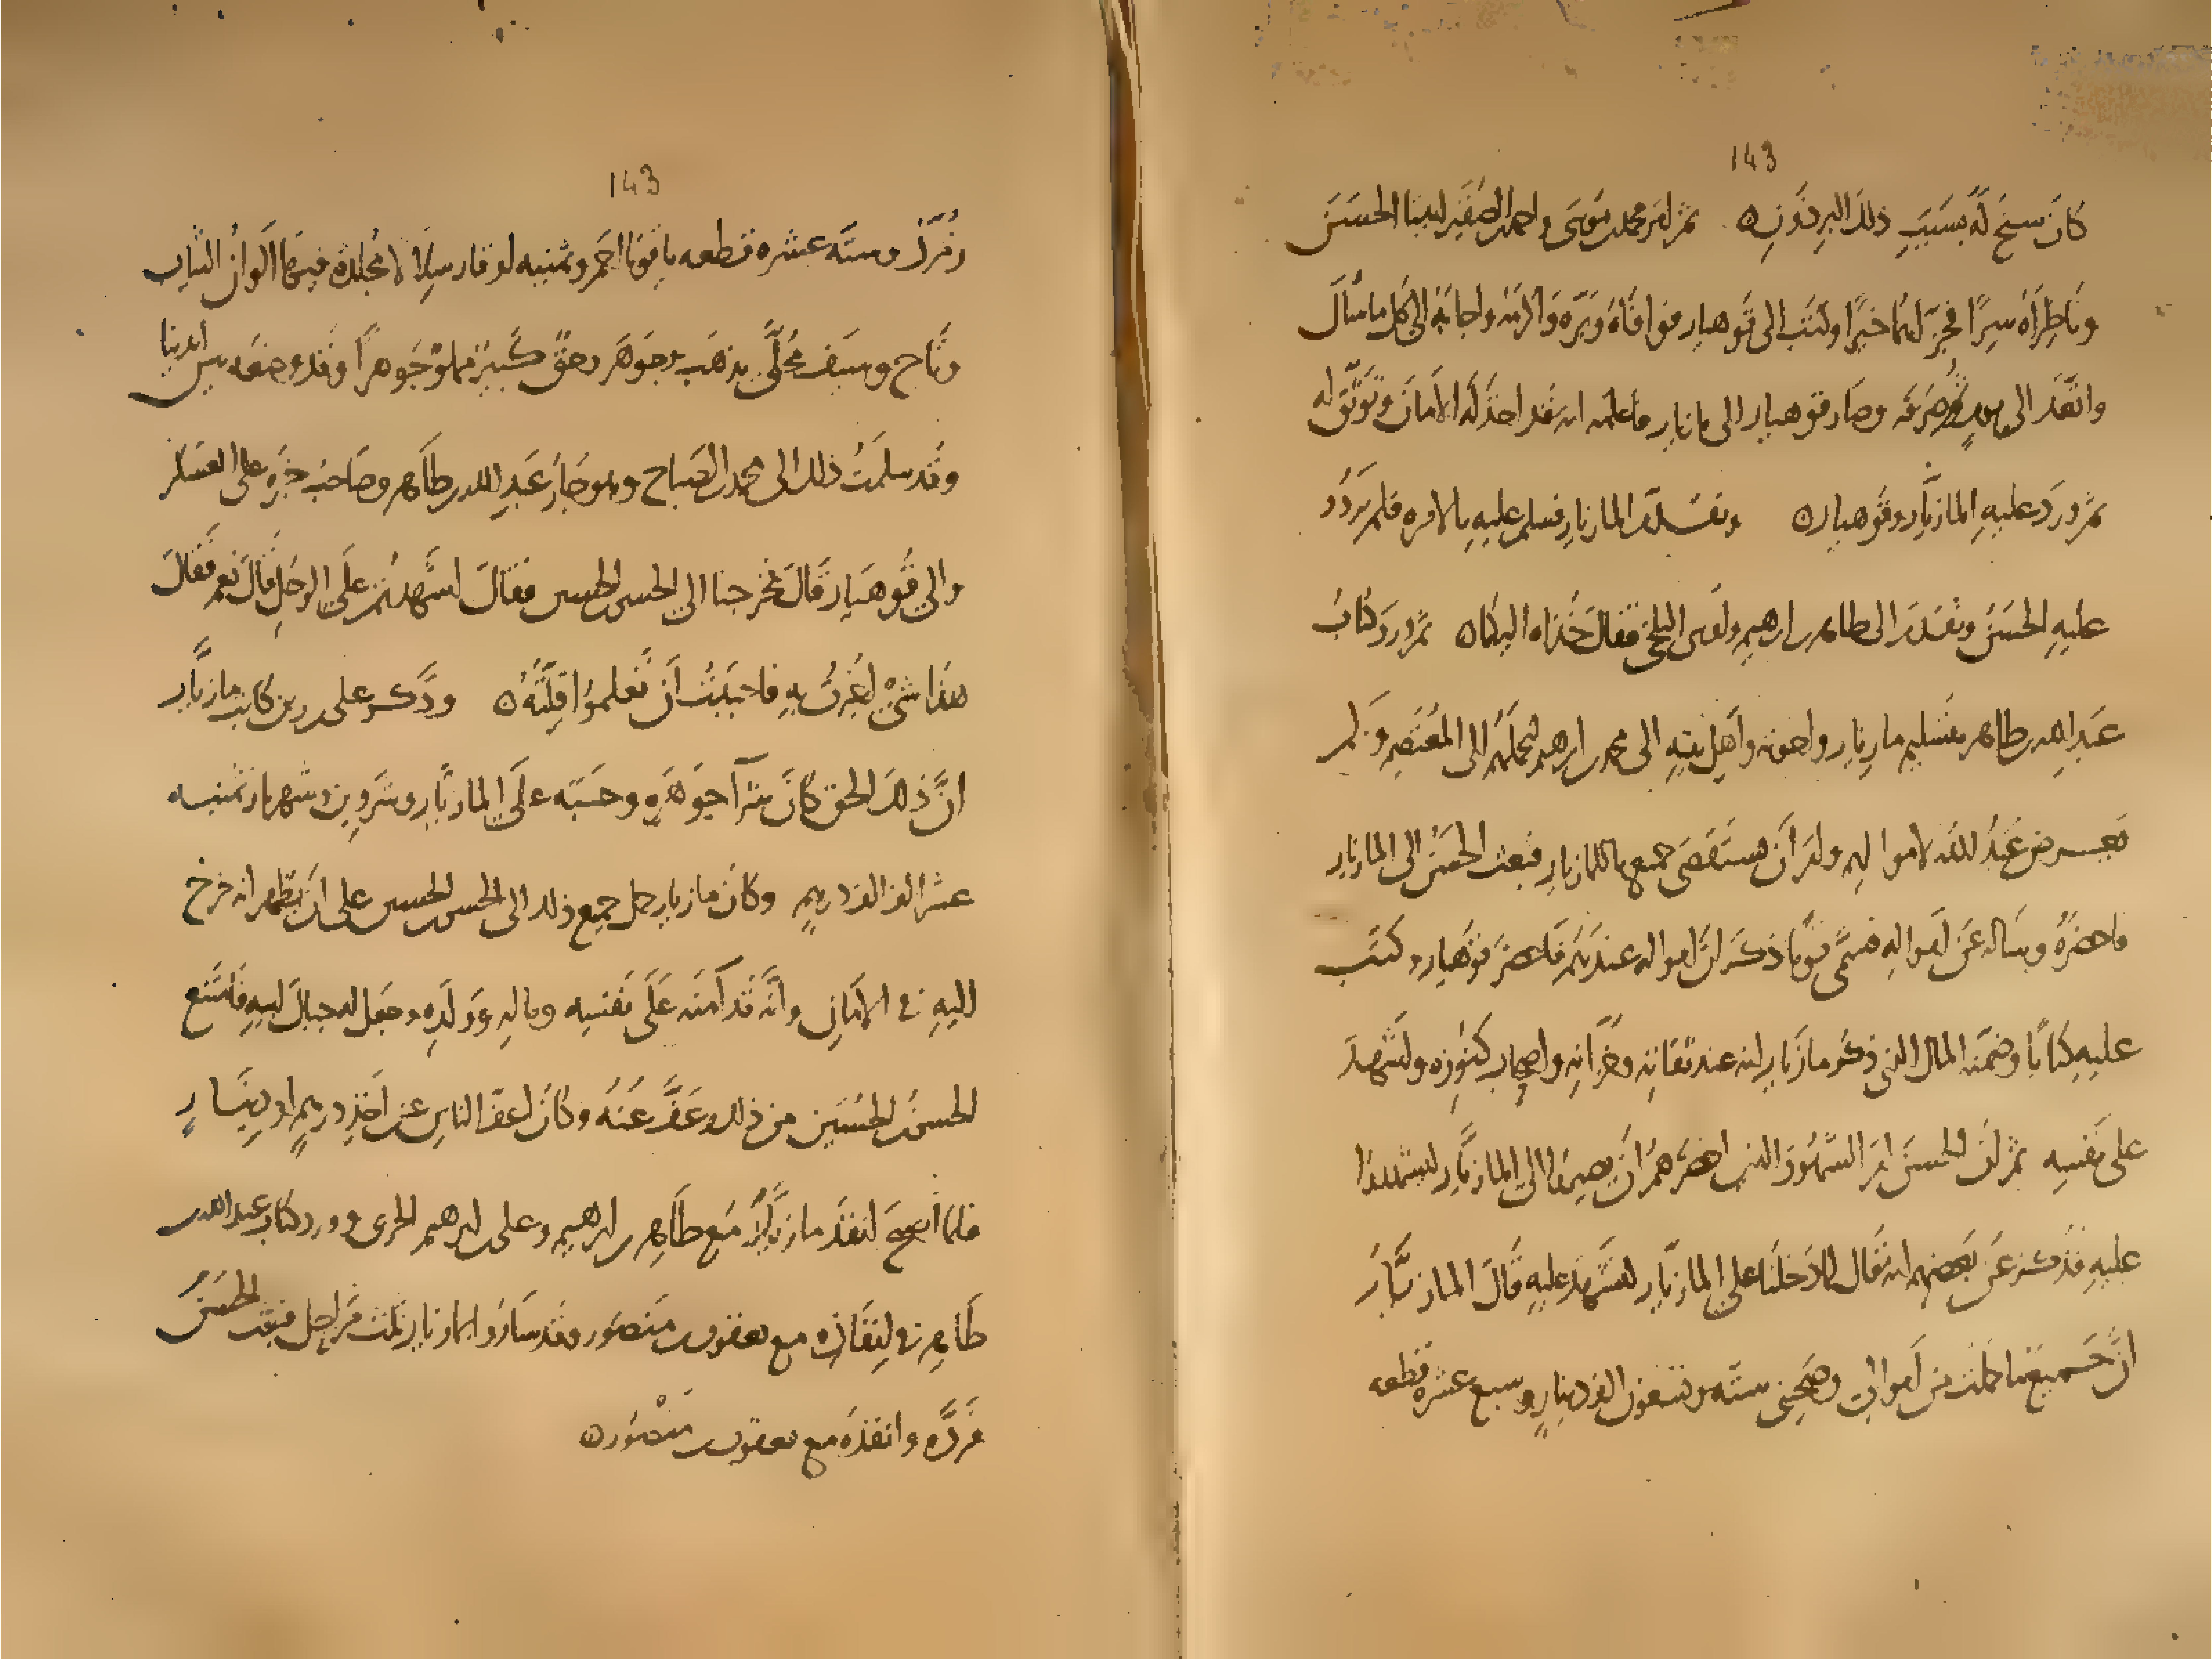 143
كان سنح له بسبب ذلك البرذون ثم امر محمد بن موسى واحمد بن الصقير ليتيا الحسن
وناظراه سرا فجزاهما خيرا وكتب الى قوهيار فوافاه وبره واكرمه واجابه الى كل ما سأل
واتعدا الى يوم ثم صرفه وصار قوهيار الى مازيار فاعلمه انه قد اخذ له الامان وتوثق له
ثم ورد عليه المازيار وقوهيار وتقدم المازيار فسلم عليه بالامره فلم يردد
عليه الحسن وتقدم الى طاهر بن ابرهيم واوس البلخي فقال خذاه اليكما ثم ورد كتاب
عبد الله بن طاهر بتسليم مازيار واخوته واهل بيته الى محمد بن ابرهيم ليحملهم الى المعتصم ولم
يعرض عبد الله لاموالهم وامر ان يستقصى جميع ما للمازيار فبعث الحسن الى المازيار
فاحضره وساله عن امواله فسمى قوما ذكر ان امواله عندهم فاحضر قوهيار وكتب
عليه كتابا وضمنه المال الذي ذكره مازيار انه عند ثقاته وخزانه واصحاب كنوزه واشهد
على نفسه ثم ان الحسن امر الشهود الذين احضرهم ان يصيروا الى المازيار ليشهدوا
عليه فذكر عن بعضهم انه قال لما دخلنا على المازيار لنشهد عليه قال المازيار
ان جميع ما حملت من اموالي وصحبني سته وتسعون الف دينار وسبع عشره قطعه
143
زمرذ وسته عشره قطعه ياقوتا احمر وثمنيه اوقار سلالا مجلده فيها الوان الثياب
وتاج وسيف محلى بذهب وجوهر وحق كبير مملو جوهرا وقد وضعه بين ايدينا
وقد سلمت ذلك الى محمد بن الصباح وهو خازن عبد الله بن طاهر وصاحب خبره على العسكر
والى قوهيار قال فخرجنا الى الحسن بن الحسين فقال اشهدتم على الرجل قال نعم فقال
هذا شيء اغررت به فاحببت ان تعلموا قلته وذكر على بن ربن كاتب مازيار
ان ذلك الحق كان شرآ جوهره وحسبه على المازيار وشروين وشهريار ثمنيه
عشر الف الف درهم وكان مازيار حمل جميع ذلك الى الحسن بن الحسين على ان يظهر انه خرج
اليه في الامان وانه قد آمنه على نفسه وماله وولده وجعل له جبال ابيه فامتنع
الحسن بن الحسين من ذلك وعف عنه وكان اعف الناس عن اخذ درهم او دينار
فلما اصبح انفذ مازيار مع طاهر بن ابرهيم وعلى بن ابرهيم الحربي وورد كتاب عبد الله بن
طاهر في انفاذه مع يعقوب بن منصور وقد ساروا بالمازيار ثلث مراحل فبعث الحسن
فرده وانفذه مع يعقوب بن منصور